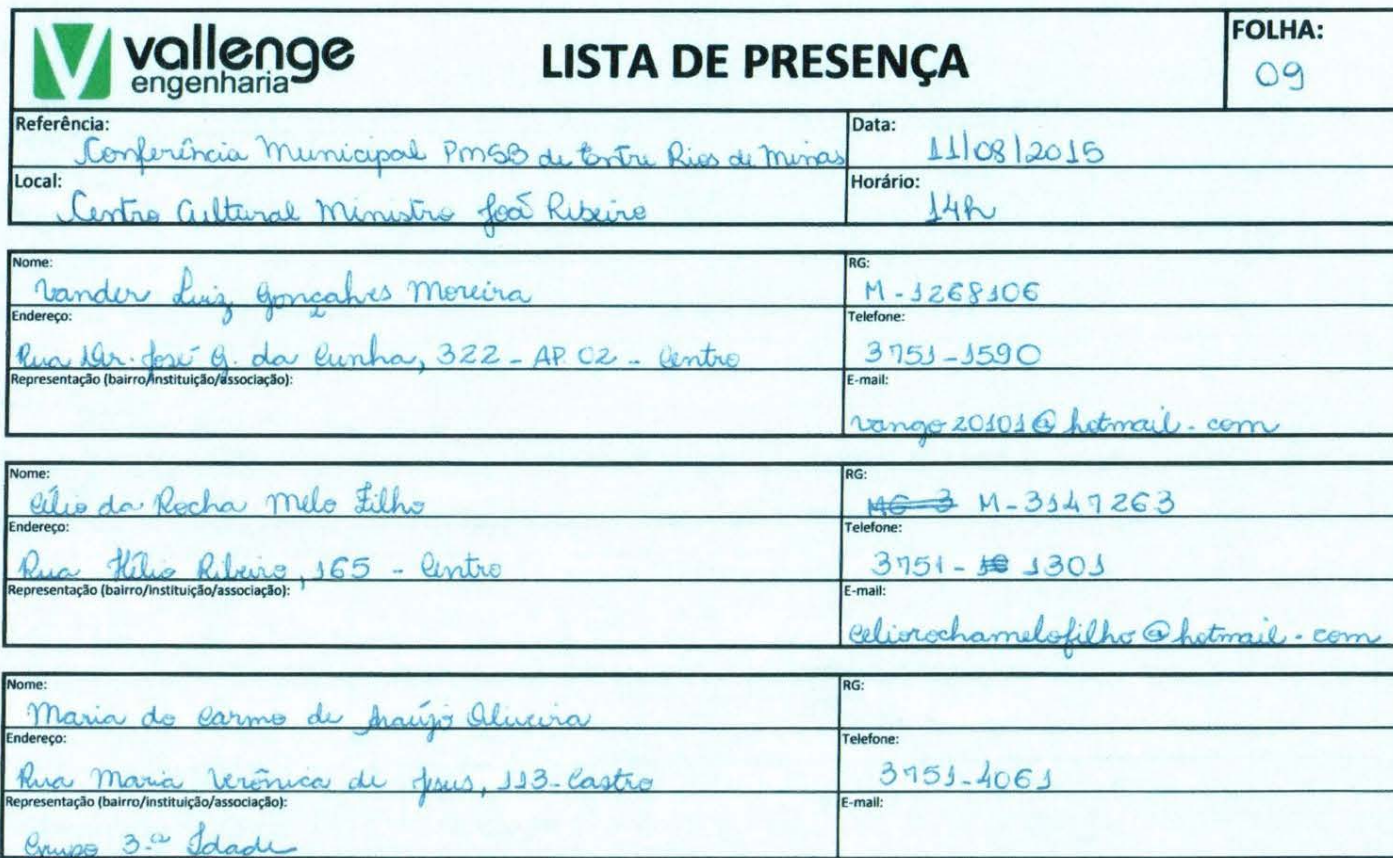 vallenge
engenharia
LISTA DE PRESENÇA
FOLHA:
09
Referência:
Conferência Municipal PMSB de Entre Rios de Minas
Data:
11/08/2015
Local:
Centro Cultural Ministro João Ribeiro
Horário:
14h
Nome:
Vander Luiz Gonçalves Moreira
RG:
M-1268106
Endereço:
Rua Dr. José G. da Cunha, 322 - AP. 02 - Centro
Telefone:
3751-1590
Representação (bairro/instituição/associação):
E-mail:
vango20101@hotmail.com
Nome:
Célio da Rocha Melo Filho
RG:
MG-3 M-3147263
Endereço:
Rua Hélio Ribeiro, 165 - Centro
Telefone:
3751-1301
Representação (bairro/instituição/associação):
E-mail:
celiorochamelofilho@hotmail.com
Nome:
Maria do Carmo de Araújo Oliveira
RG:
Endereço:
Rua Maria Verônica de Jesus, 113-Castro
Telefone:
3751-4061
Representação (bairro/instituição/associação):
Grupo 3.ª Idade
E-mail: